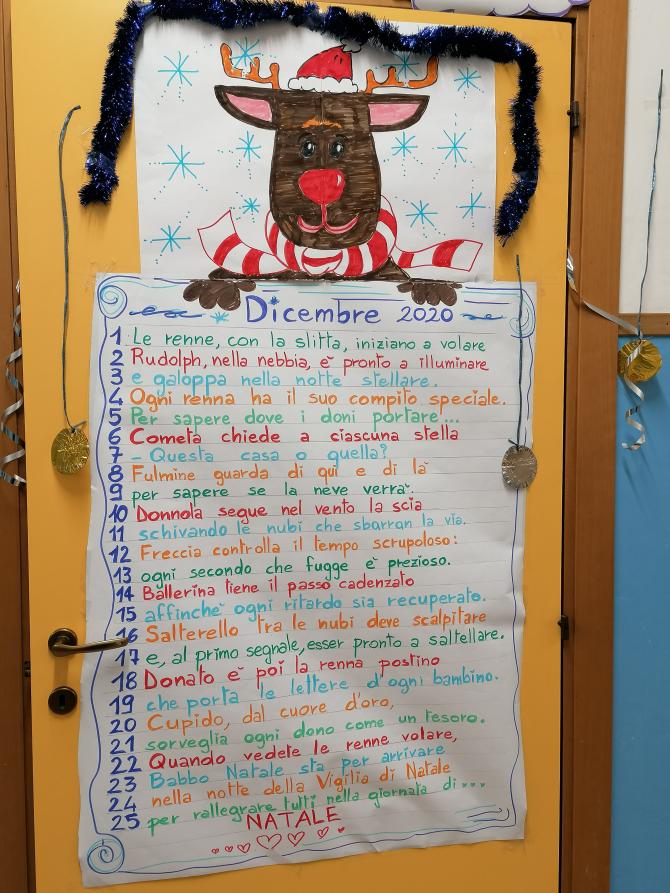 Dicembre 2020
1 Le renne, con la slitta, iniziano a volare
2 Rudolph, nella nebbia, è pronto a illuminare
3 e galoppa nella notte stellare.
4 Ogni renna ha il suo compito speciale.
5 Per sapere dove i doni portare...
6 Cometa chiede a ciascuna stella
7 - Questa casa o quella?
8 Fulmine guarda di qui e di là
9 per sapere se la neve verrà.
10 Donnola segue nel vento la scia
11 schivando le nubi che sbarran la via.
12 Freccia controlla il tempo scrupoloso:
13 ogni secondo che fugge è prezioso.
14 Ballerina tiene il passo cadenzato
15 affinchè ogni ritardo sia recuperato.
16 Salterello tra le nubi deve scalpitare
17 e, al primo segnale, esser pronto a saltellare.
18 Donato è poi la renna postino
19 che porta le lettere d'ogni bambino.
20 Cupido, dal cuore d'oro,
21 sorveglia ogni dono come un tesoro.
22 Quando vedete le renne volare,
23 Babbo Natale sta per arrivare
24 nella notte della Vigilia di Natale
25 per rallegrare tutti nella giornata di...
NATALE